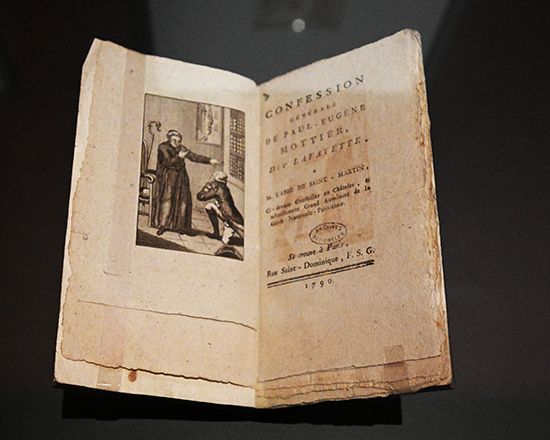 CONFESSION
GÉNÉRALE
DE PAUL-EUGÈNE
MOTTIER,
DIT LAFAYETTE,
A
M. L'ABBÉ DE SAINT-MARTIN,
Ci-devant Conseiller au Châtelet, et
actuellement Grand Aumônier de la
Garde-Nationale-Parisienne.
ARCHIVES
NATIONALES
Se trouve à Paris,
Rue Saint-Dominique, F. S. G.
1790.